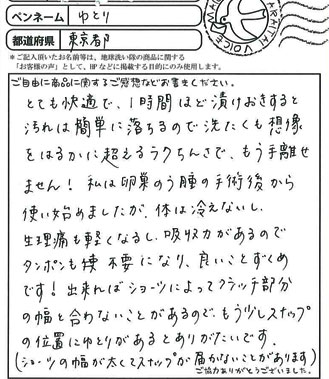 ペンネーム ゆとり
都道府県 東京都
＊ご記入頂いたお名前等は、地球洗い隊の商品に関する
「お客様の声」として、HPなどに掲載する目的にのみ使用します。
ご自由に商品に関するご感想などお書きください。
とても快適で、1時間ほど漬けおきすると
汚れは簡単に落ちるので洗たくも想像
をはるかに超えるラクちんさで、もう手離せ
ません！私は卵巣のう腫の手術後から
使い始めましたが、体は冷えないし、
生理痛も軽くなるし、吸収力があるので
タンポンも不要になり、良いことずくめ
です！出来ればショーツによってクラッチ部分
の幅と合わないことがあるので、もう少しスナップ
の位置にゆとりがあるとありがたいです。
(ショーツの幅が太くてスナップが届かないことがあります)
ご協力ありがとうございました。